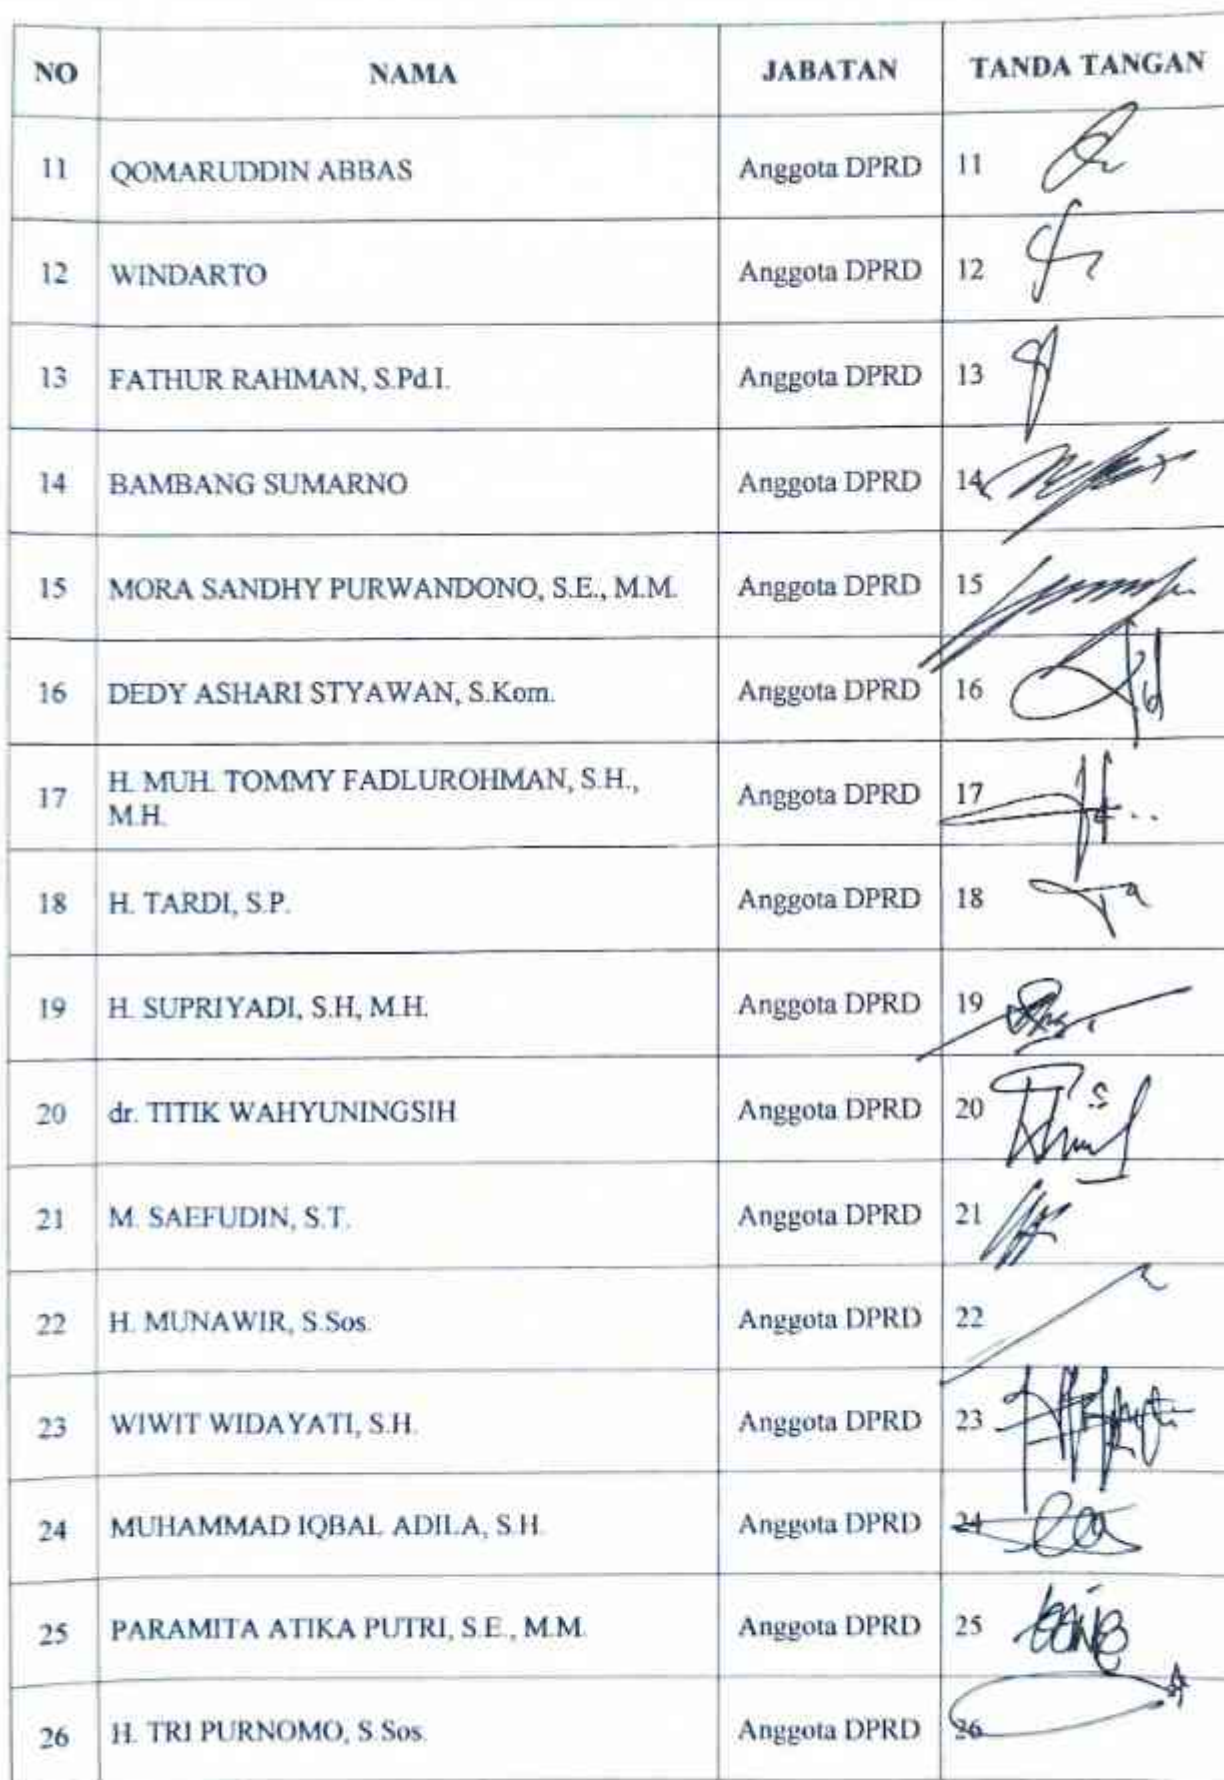 NO NAMA JABATAN TANDA TANGAN
11 QOMARUDDIN ABBAS Anggota DPRD 11
12 WINDARTO Anggota DPRD 12
13 FATHUR RAHMAN, S.Pd.I. Anggota DPRD 13
14 BAMBANG SUMARNO Anggota DPRD 14
15 MORA SANDHY PURWANDONO, S.E., M.M. Anggota DPRD 15
16 DEDY ASHARI STYAWAN, S.Kom. Anggota DPRD 16
17 H. MUH. TOMMY FADLUROHMAN, S.H., Anggota DPRD 17
M.H.
18 H. TARDI, S.P. Anggota DPRD 18
19 H. SUPRIYADI, S.H, M.H. Anggota DPRD 19
20 dr. TITIK WAHYUNINGSIH Anggota DPRD 20
21 M. SAEFUDIN, S.T. Anggota DPRD 21
22 H. MUNAWIR, S.Sos. Anggota DPRD 22
23 WIWIT WIDAYATI, S.H. Anggota DPRD 23
24 MUHAMMAD IQBAL ADILA, S.H. Anggota DPRD 24
25 PARAMITA ATIKA PUTRI, S.E., M.M. Anggota DPRD 25
26 H. TRI PURNOMO, S.Sos. Anggota DPRD 26